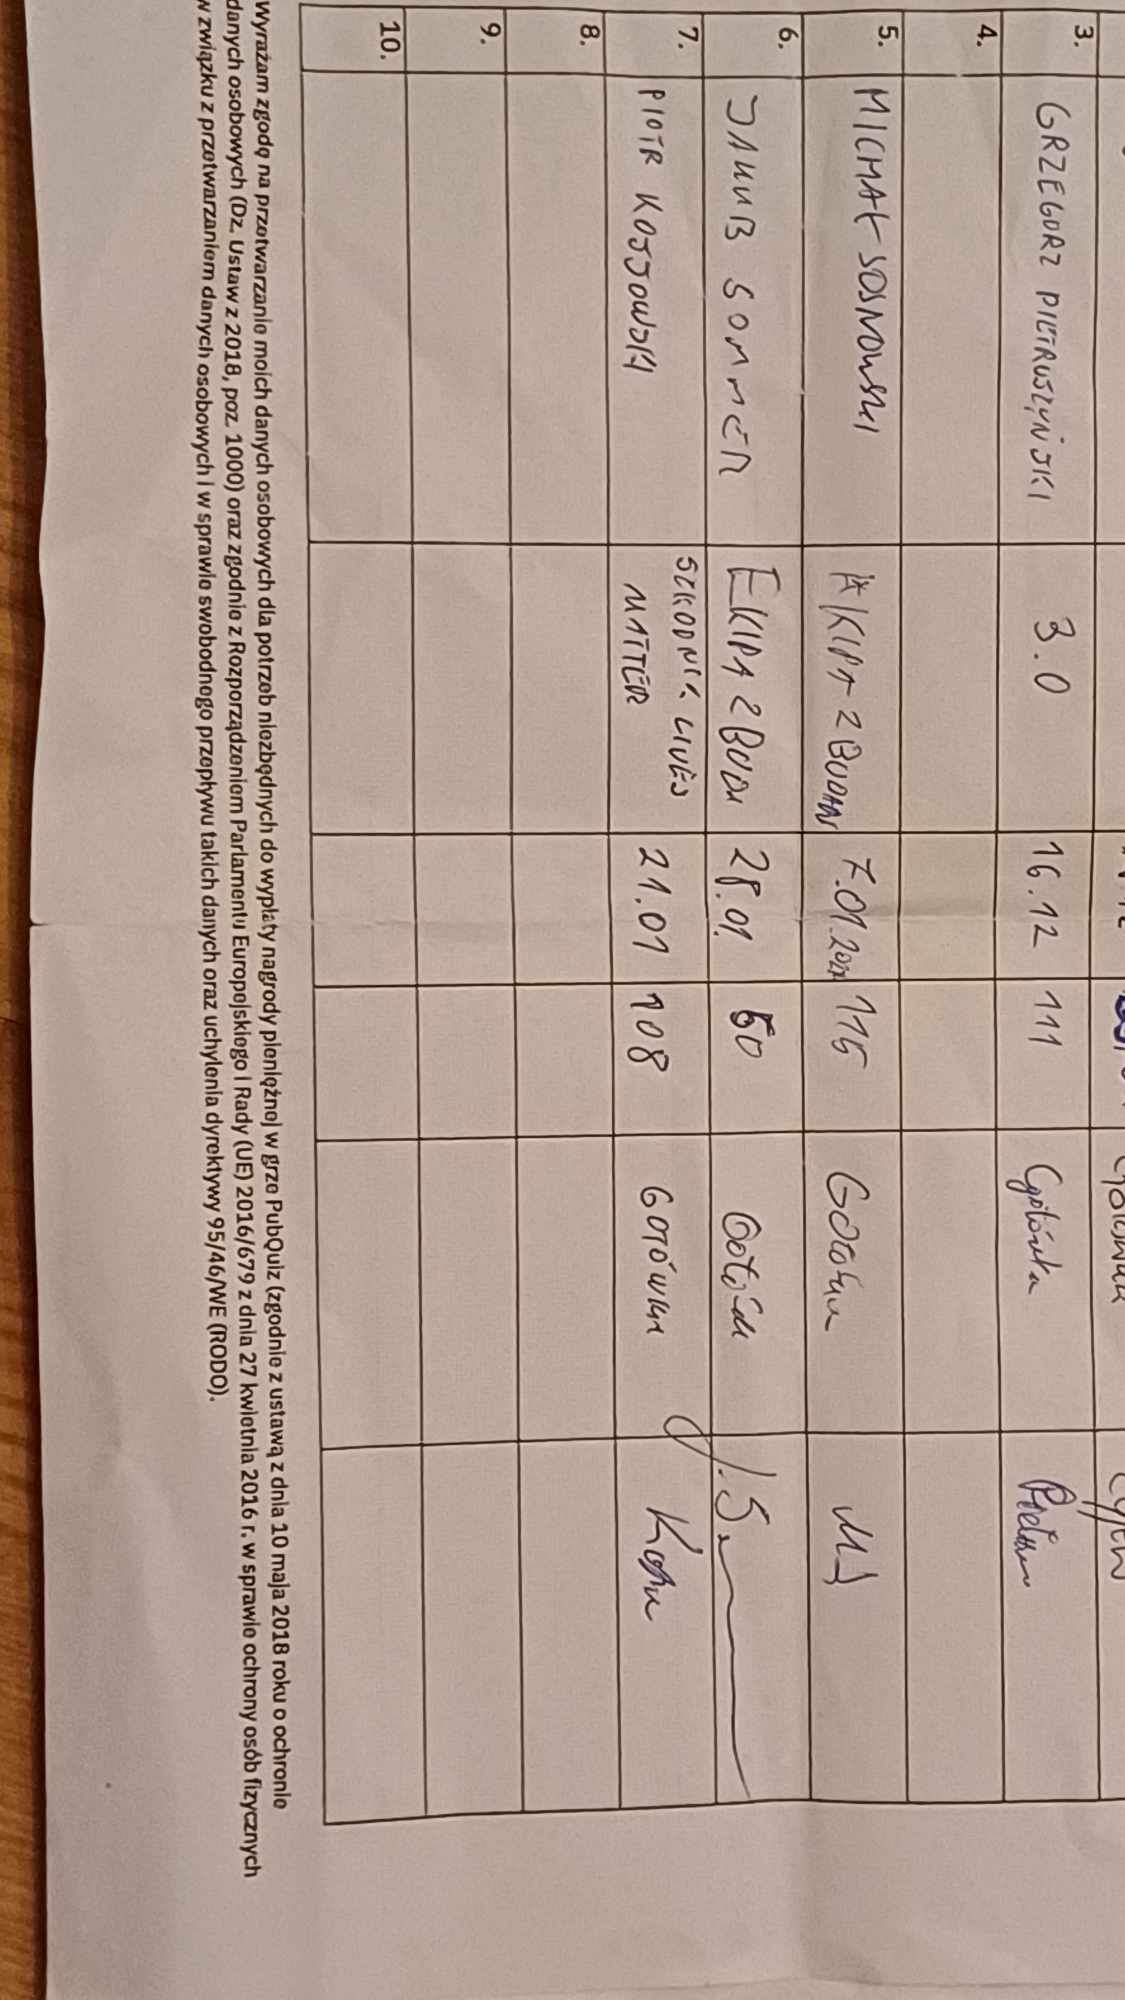 3. GRZEGORZ PIETRUSZYŃSKI 3.0 16.12 111 Gotówka
4.
5. MICHAŁ SOSNOWSKI EKIPA Z BUDOW 7.01 115
6. JAKUB SOMMER EKIPA Z BUDY 28.01. 50 J.S
7. PIOTR KOSSOWSKI SZKODNIK LIVES MATTER 21.01 108 GOTÓWKA
8.
9.
10.
Wyrażam zgodę na przetwarzanie moich danych osobowych dla potrzeb niezbędnych do wypłaty nagrody pieniężnej w grze PubQuiz (zgodnie z ustawą z dnia 10 maja 2018 roku o ochronie
danych osobowych (Dz. Ustaw z 2018, poz. 1000) oraz zgodnie z Rozporządzeniem Parlamentu Europejskiego i Rady (UE) 2016/679 z dnia 27 kwietnia 2016 r. w sprawie ochrony osób fizycznych
w związku z przetwarzaniem danych osobowych i w sprawie swobodnego przepływu takich danych oraz uchylenia dyrektywy 95/46/WE (RODO).